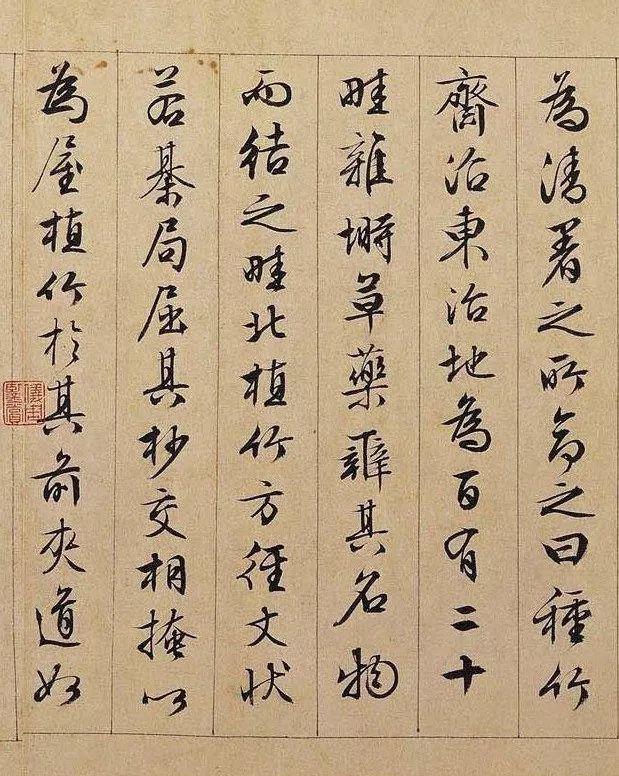 為清暑之所命之曰種竹
齋沼東治地為百有二十
畦雜塒草藥辨其名物
而結之畦北植竹方徑丈狀
若棊局屈其杪交相掩以
為屋植竹於其前夾道如